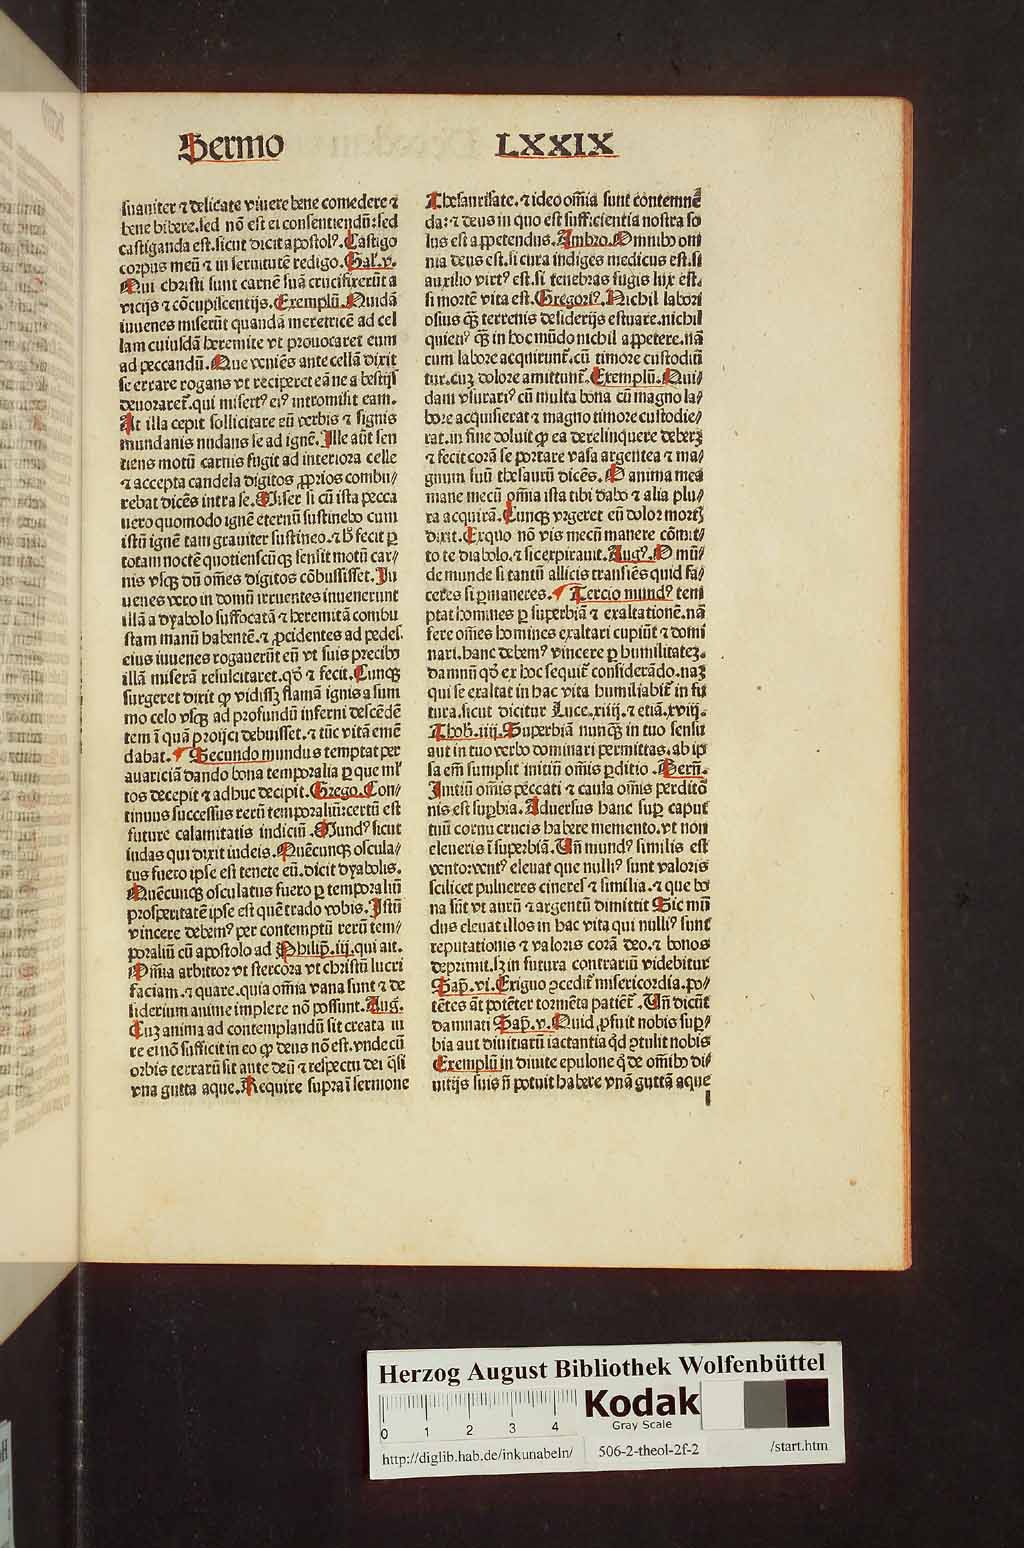 Sermo LXXIX
suauiter ⁊ delicate viuere bene comedere ⁊
bene bibere. sed nō est ei consentiendū: sed
castiganda est. sicut dicit apostolꝰ. Castigo
corpus meū ⁊ in seruitutē redigo. Gal. v.
Qui christi sunt carnē suā crucifixerūt a
vicijs ⁊ cōcupiscentijs. Exemplū. Quidā
iuuenes miserūt quandā meretricē ad cel
lam cuiusdā heremite vt prouocaret eum
ad peccandū. Que veniēs ante cellā dixit
se errare rogans vt reciperet eā ne a bestijs
deuoraret᷒. qui misertꝰ eiꝰ intromisit eam.
At illa cepit sollicitare eū verbis ⁊ signis
mundanis nudans se ad ignē. Ille aūt sen
tiens motū carnis fugit ad interiora celle
⁊ accepta candela digitos ꝓprios combu/
rebat dicēs intra se. Miser si cū ista pecca
uero quomodo ignē eternū sustinebo cum
istū ignē tam grauiter sustineo. ⁊ h̄ fecit ꝑ
totam noctē quotienscūqꝫ sensit motū car/
nis vsqꝫ dū om̄es digitos cōbussisset. Iu
uenes vero in domū irruentes inuenerunt
illā a dyabolo suffocatā ⁊ heremitā combu
stam manū habentē. ⁊ ꝓcidentes ad pedes
eius iuuenes rogauerūt eū vt suis precibꝰ
illā miserā resuscitaret. qd̄ ⁊ fecit. Cunqꝫ
surgeret dixit ꝙ vidissꝫ flamā ignis a sum
mo celo vsqꝫ ad profundū inferni descēdē
tem ī quā proijci debuisset. ⁊ tūc vitā emē
dabat. ¶ Secundo mundus temptat per
auariciā dando bona temporalia ꝑ que ml̓
tos decepit ⁊ adhuc decipit. Grego. Con/
tinuus successus rerū temporaliū: certū est
future calamitatis indiciū. Mundꝰ sicut
iudas qui dixit iudeis. Quēcunqꝫ oscula/
tus fuero ipse est tenete eū. dicit dyabolus.
Quēcunqꝫ osculatus fuero ꝑ temporaliū
prosperitatē ipse est quē trado vobis. Istū
vincere debemꝰ per contemptū rerū tem/
poraliū cū apostolo ad Philip̄. iij. qui ait.
Om̄ia arbitror vt stercora vt christū lucri
faciam. ⁊ quare. quia om̄ia vana sunt ⁊ de
siderium anime implere nō possunt. Aug.
Cuꝫ anima ad contemplandū sit creata iu
re ei nō sufficit in eo ꝙ deus nō est. vnde cū
orbis terrarū sit ante deū ⁊ respectu dei q̄si
vna gutta aque. Require supra ī sermone
Thesaurisate. ⁊ ideo om̄ia sunt contemnē
da: ⁊ deus in quo est sufficientia nostra so
lus est appetendus. Ambro. Omnibꝰ om
nia deus est. si cura indiges medicus est. si
auxilio virtꝰ est. si tenebras fugis lux est.
si mortē vita est. Gregoriꝰ. Nichil labori
osius qꝫ terrenis desiderijs estuare. nichil
quietiꝰ qꝫ in hoc mūdo nichil appetere. nā
cum labore acquirunt᷒. cū timore custodiū
tur. cuꝫ dolore amittunt᷒. Exemplū. Qui/
dam vsurariꝰ cū multa bona cū magno la/
bore acquisierat ⁊ magno timore custodie/
rat. in fine doluit ꝙ ea derelinquere deberꝫ
⁊ fecit corā se portare vasa argentea ⁊ ma/
gnum suū thesaurū dicēs. O anima mea
mane mecū om̄ia ista tibi dabo ⁊ alia plu/
ra acquirā. Cunqꝫ vrgeret eū dolor mortꝭ
dixit. Exquo nō vis mecū manere cōmit/
to te diabolo. ⁊ sic expirauit. Augꝰ. O mū/
de munde si tantū allicis transiēs quid fa/
ceres si ꝑmaneres. ¶ Tercio mundꝰ tem
ptat homines ꝑ superbiā ⁊ exaltationē. nā
fere om̄es homines exaltari cupiūt ⁊ domi
nari. hanc debemꝰ vincere ꝑ humilitateꝫ.
damnū qd̄ ex hoc sequit᷒ considerādo. naꝫ
qui se exaltat in hac vita humiliabit᷒ in fu
tura. sicut dicitur Luce. xiiij. ⁊ etiā. xviij.
Thob. iiij. Superbiā nunqꝫ in tuo sensu
aut in tuo verbo dominari permittas. ab ip
sa em̄ sumpsit initiū om̄is ꝑditio. Bern̄.
Initiū om̄is peccati ⁊ causa om̄is perditō
nis est supbia. Aduersus hanc suꝑ caput
tuū cornu crucis habere memento. vt non
eleueris ī superbiā. Un̄ mundꝰ similis est
vento: ventꝰ eleuat que nulliꝰ sunt valoris
scilicet pulueres cineres ⁊ similia. ⁊ que bo
na sūt vt aurū ⁊ argentū dimittit Sic mū
dus eleuat illos in hac vita qui nulliꝰ sunt
reputationis ⁊ valoris corā deo. ⁊ bonos
deprimit. sꝫ in futura contrariū videbitur
Sap̄. vi. Exiguo ꝯcedit᷒ misericordia. po/
tētes āt potēter tormēta patient᷒. Un̄ dicūt
damnati Sap̄. v. Quid ꝓfuit nobis suꝑ/
bia aut diuitiarū iactantia qd̄ ꝯtulit nobis
Exemplū in diuite epulone q̄ de om̄ibꝰ di/
uitijs suis n̄ potuit habere vnā guttā aque
l
Herzog August Bibliothek Wolfenbüttel
0 1 2 3 4
Kodak
Gray Scale
http://diglib.hab.de/inkunabeln/ 506-2-theol-2f-2 /start.htm